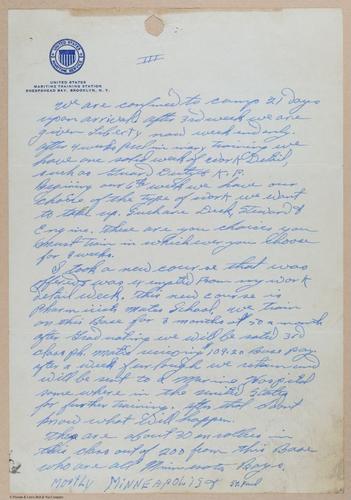 UNITED STATES
MARITIME TRAINING STATION
SHEEPSHEAD BAY, BROOKLYN, N. Y.
III
We are confined to camp 21 days
upon arrival, after 3rd week we are
given Liberty now weekend only.
After 4 weeks preliminary training we
have one solid week of work Detail,
such as Guard Duty & K.P.
our 6th week we have our
choice of the type of work we want
to take up. Such are Deck, Steward &
Engine. these are you choices you
must train in whichever you choose
for 8 weeks.
I took a new course that was
offered was from my work
detail week. this new course is
Pharmicist Mates School, we train
on this Base for 3 months at 50 a month
after Graduating we will be rated 3rd
class ph. mates Base pay
after a week furlough we return and
will be sent to a Marine Hospital
some where in the united States
for further training. after that I don't
know what will happen.
There are about 30 in
this class out of 200 from this Base
who are all Minnesota Boys.
MOSTLY MINNEAPOLIS & St Paul